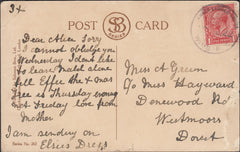 3x
POST CARD
SB
SERIES
Dear Alice Sorry
I cannot oblidge you
Wednesday I dont like
to leave Mabel alone
till Effer the xmas
free is Thursday evening
not Friday love from
Mother
I am sending on
Elsies Dress
Miss A Green
C/o Miss Hayward
Donewood Rd
Westmoors
Dorset